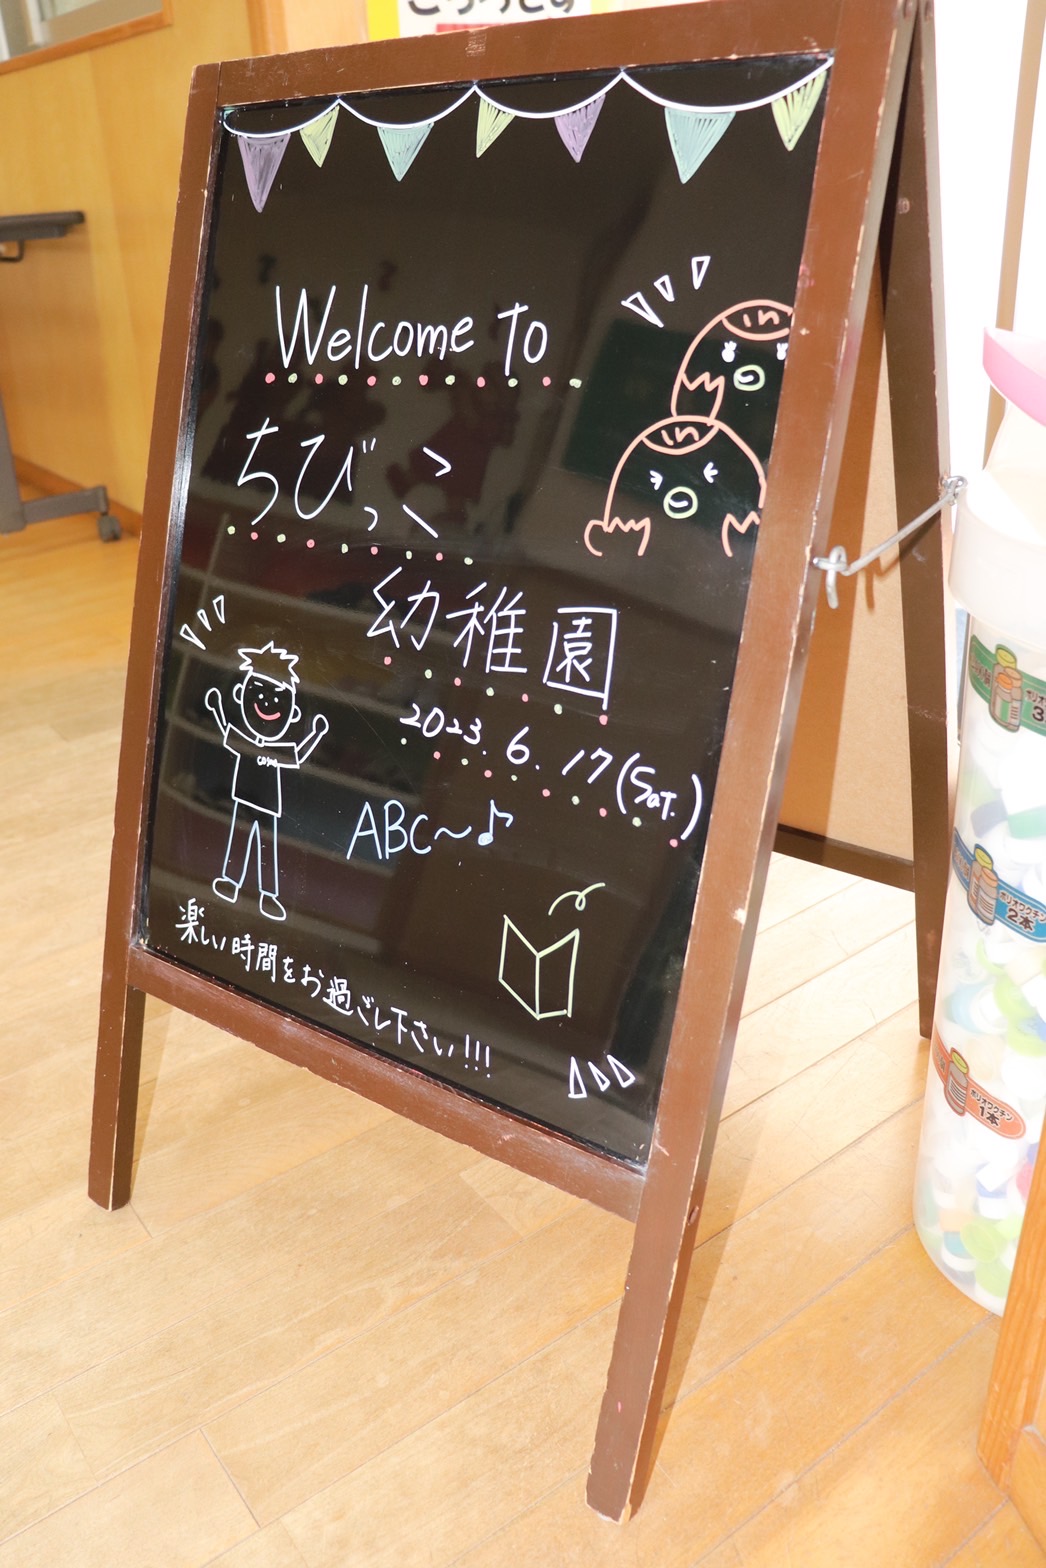 Welcome To
ちびっこ
幼稚園
2023. 6. 17(Sat.)
ABC～♪
楽しい時間をお過ごし下さい!!!
ポリオワクチン
2本
ポリオワクチン
1本